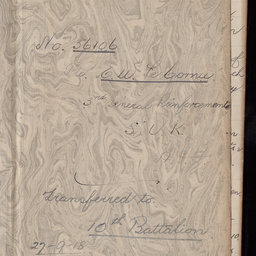 No. 56106
C. W.
3rd General Reinforcements
S. U. K.
Transferred to
10th Battalion
27-9-18